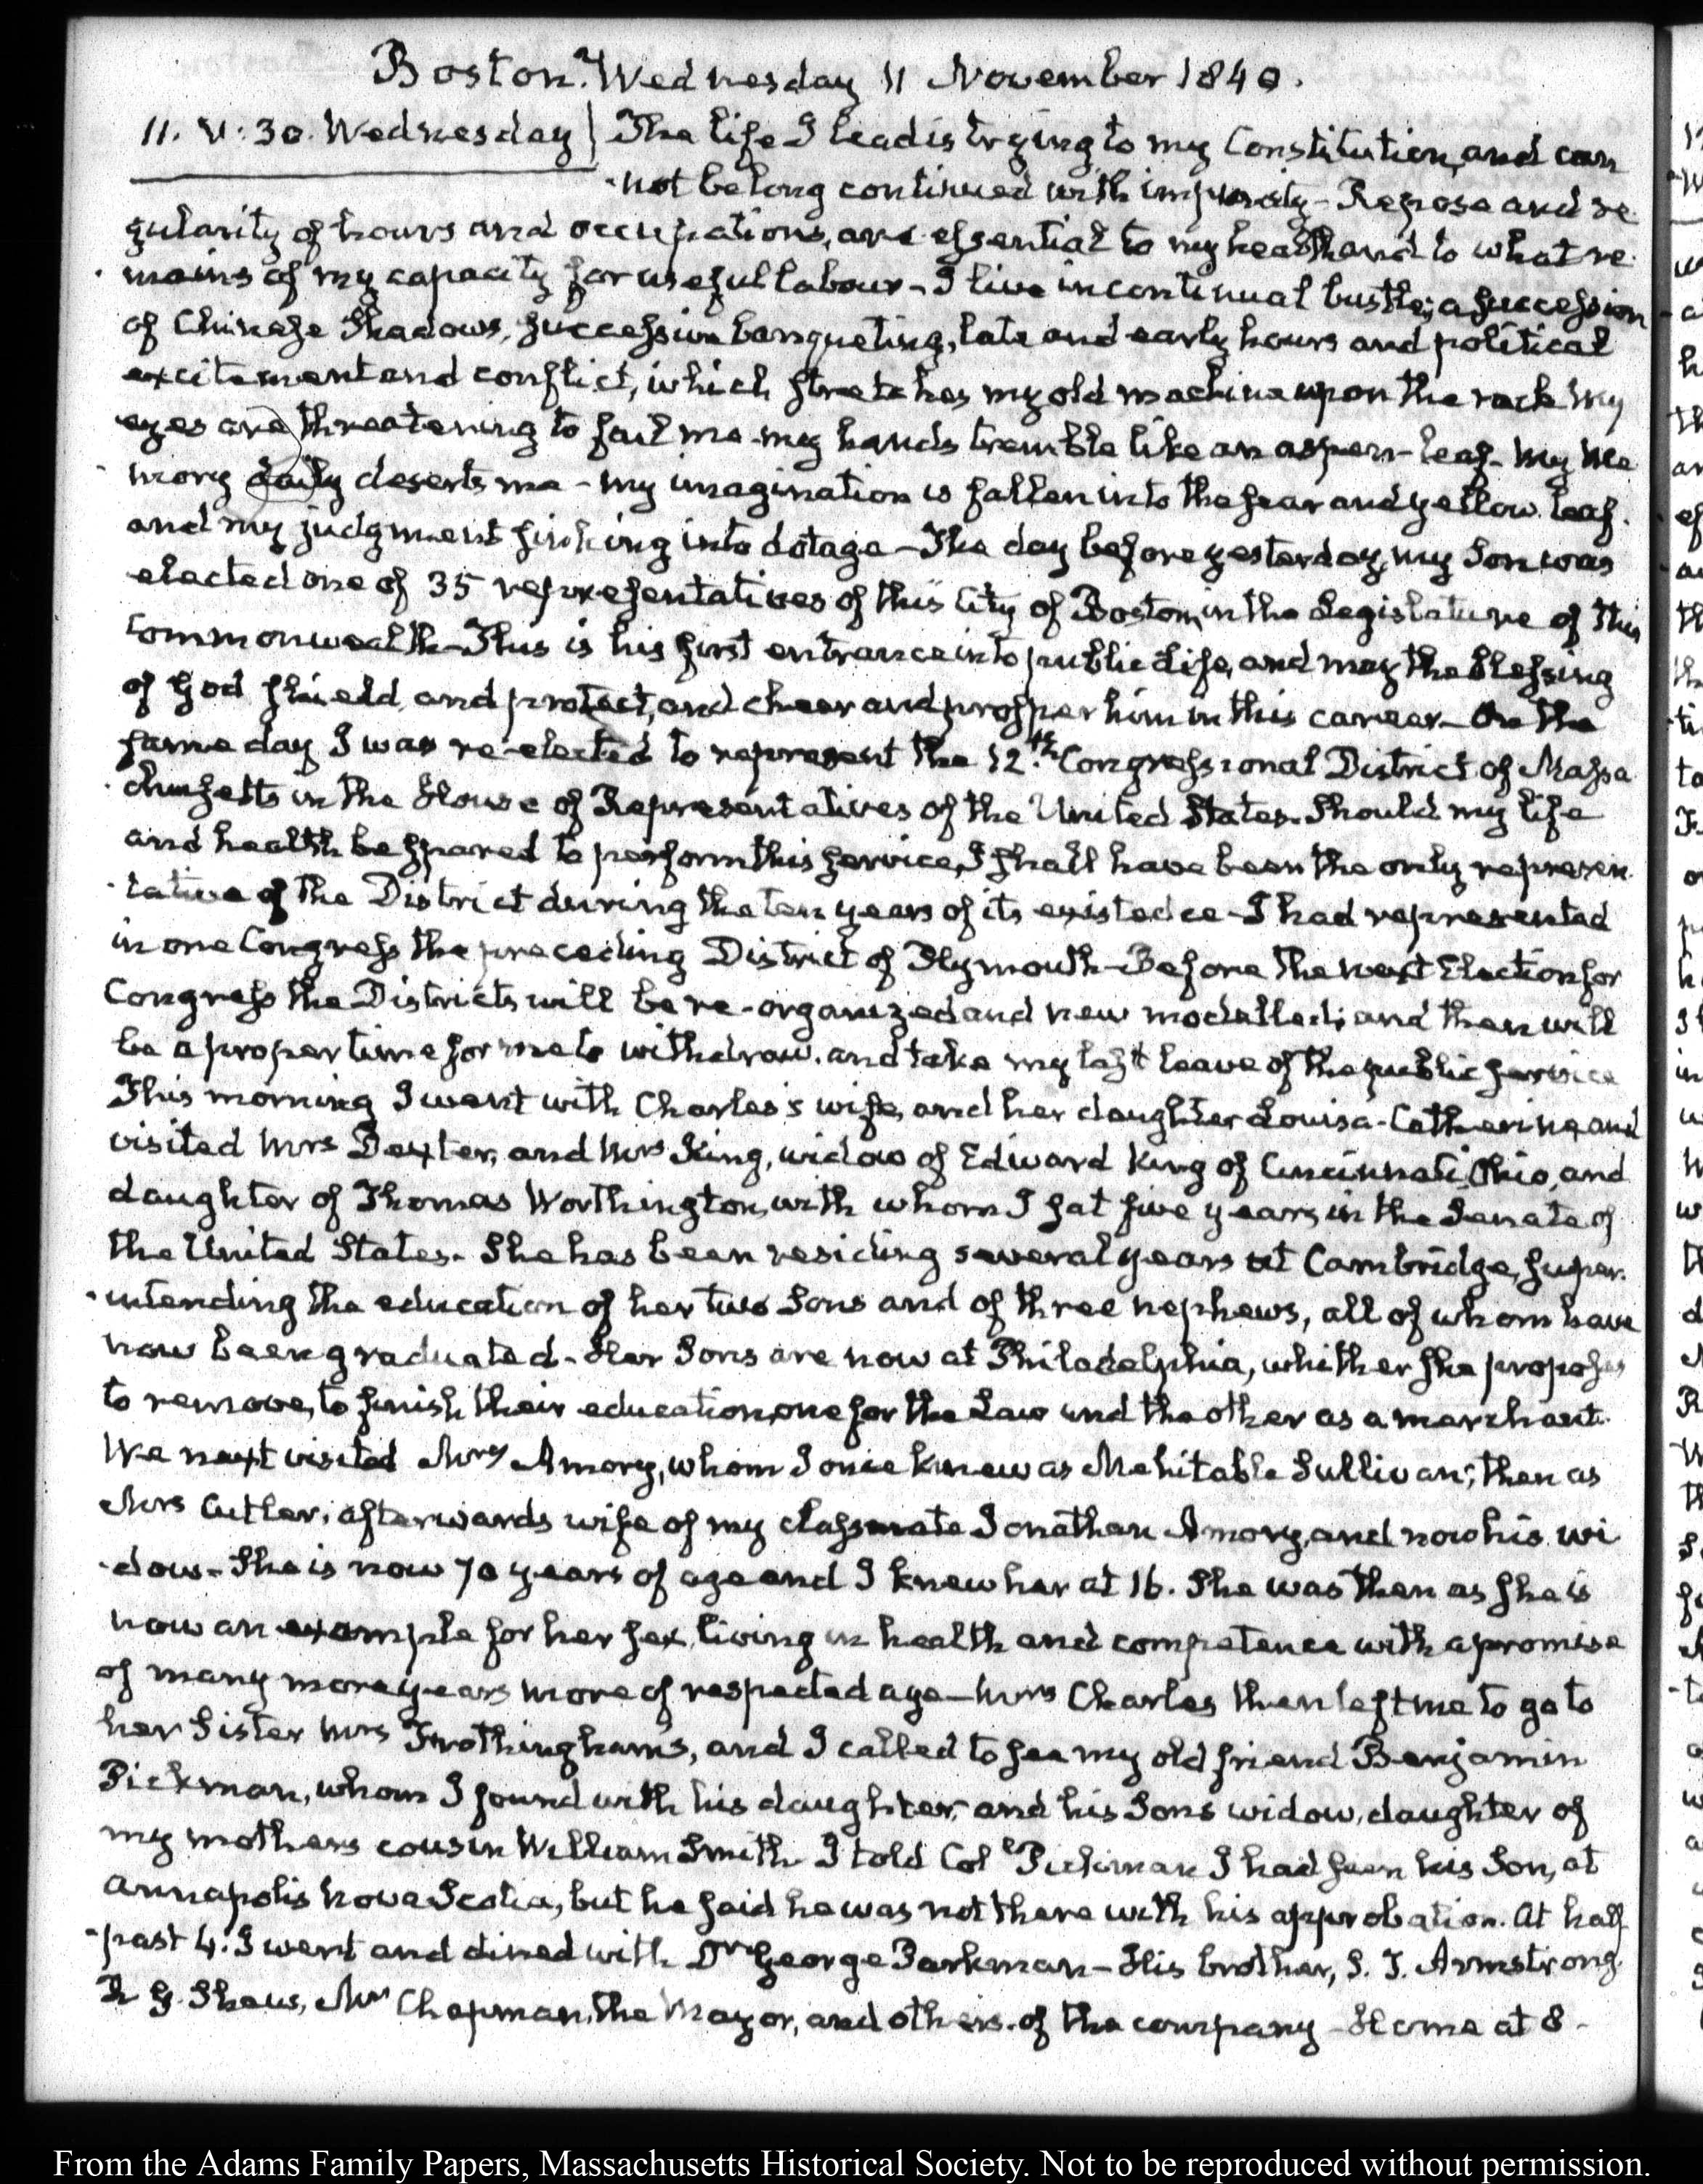 Boston. Wednesday 11 November 1840.
11. V:30. Wednesday The life I lead is trying to my Constitution, and can
not be long continued with impunity – Repose and re
gularity of hours and occupations, are essential to my health and to what re
mains of my capacity for useful labour – I live in continual bustle; a succession
of Chinese Shadows, succession banqueting, late and early hours and political
excitement and conflict, which stretches my old machine upon the rack My
eyes are threatening to fail me – my hands tremble like an aspen-leaf – My me
mory daily deserts me – my imagination is fallen into the sear and yellow leaf.
and my judgment sinking into dotage – The day before yesterday, my Son was
elected one of 35 representatives of this City of Boston, in the Legislature of this
Commonwealth – This is his first entrance into public life, and may the blessing
of God shield, and protect, and cheer and prosper him in this career – On the
same day I was re-elected to represent the 12.th Congressional District of Massa
chusetts in the House of Representatives of the United States. Should my life
and health be spared to perform this service, I shall have been the only represen
tative of the District during the ten years of its existedce – I had represented
in one Congress the preceding District of Plymouth – Before the next Election for
Congress the Districts will be re-organized and new modelled; and then will
be a proper time for me to withdraw, and take my last leave of the public service
This morning I went with Charles's wife, and her daughter Louisa-Catherine, and
visited Mrs Dexter, and Mrs King, widow of Edward King of Cincinnati, Ohio, and
daughter of Thomas Worthington, with whom I sat five years in the Senate of
the United States. She has been residing several years at Cambridge, super
intending the education of her two Sons and of three nephews, all of whom have
now been graduated – Her Sons are now at Philadelphia, whither she proposes
to remove, to finish their education, one for the Law and the other as a merchant.
We next visited Mrs Amory, whom I once knew as Mehitable Sullivan; then as
Mrs Cutler; afterwards wife of my classmate Jonathan Amory, and now his wi
dow – She is now 70 years of age and I knew her at 16. She was then as she is
now an example for her sex, living in health and competence with a promise
of many more years more of respected age – Mrs Charles then left me to go to
her Sister Mrs Frothingham's, and I called to see my old friend Benjamin
Pickman, whom I found with his daughter, and his Sons widow, daughter of
my mothers cousin William Smith. I told Col Pickman I had seen his Son, at
Annapolis Nova Scotia, but he said he was not there with his approbation. At half
past 4. I went and dined with Dr George Parkman – His brother, S. T. Armstrong,
R G. Shaw, Mr Chapman, the Mayor, and others. of the company – Home at 8 –
From the Adams Family Papers, Massachusetts Historical Society. Not to be reproduced without permission.